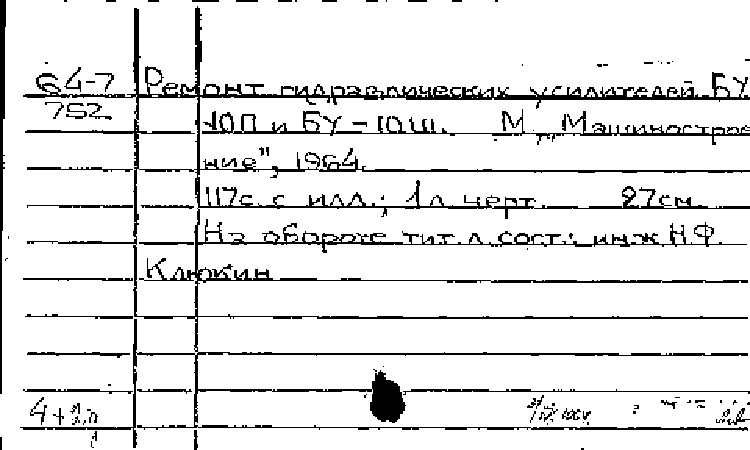 64-7 Ремонт гидравлических усилителей БУ
752
10П и БУ-10Ш. М „Машинострое
ние", 1964.
117с. с илл.; 1л. черт. 27см.
На обороте тит. л. сост.: инж. Н.Ф.
Клюкин
4+1л